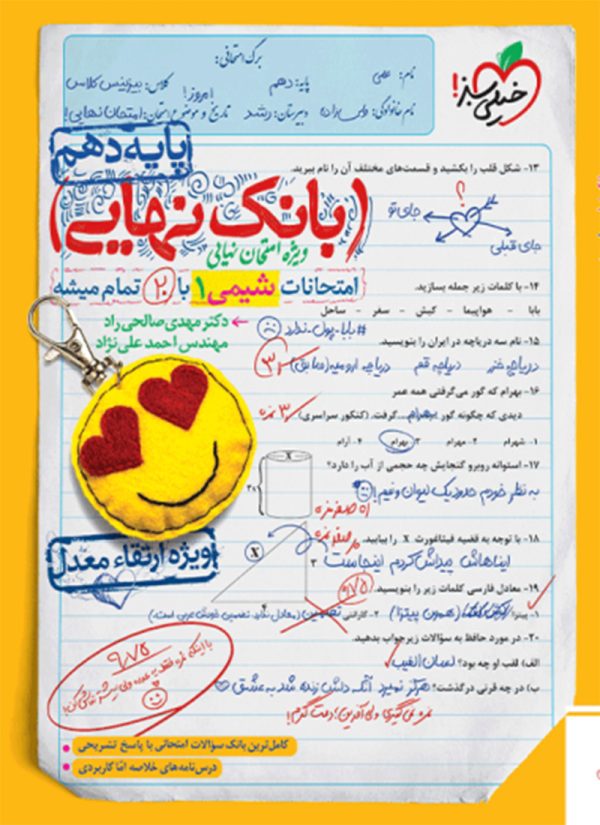 برگ امتحانی:
نام: علی
پایه: دهم
کلاس: بیزینس کلاس
نام خانوادگی:
دبیرستان: رشد
تاریخ و موضوع امتحان: امروز! امتحان نهایی!
خیلی سبز!
پایه دهم
(بانک نهایی)
ویژه امتحان نهایی
امتحانات شیمی ۱ با ۲۰ تمام میشه
دکتر مهدی صالحی راد
مهندس احمد علی نژاد
۱۳- شکل قلب را بکشید و قسمت‌های مختلف آن را نام ببرید.
؟
جای تو
جای قبلی
۱۴- با کلمات زیر جمله بسازید.
بابا - هواپیما - کیش - سفر - ساحل
#بابا_پول_ندارد
۱۵- نام سه دریاچه در ایران را بنویسید.
دریاچه خزر دریاچه قم دریاچه ارومیه (سابق)
۱۶- بهرام که گور می‌گرفتی همه عمر
دیدی که چگونه گور بهرام گرفت. (کنکور سراسری)
۳ نمره
۱- شهرام ۲- مهرام ۳- بهرام ۴- آرام
۱۷- استوانه روبرو گنجایش چه حجمی از آب را دارد؟
X
به نظر خودم حدود یک لیوان و نیم!
۱۸- با توجه به قضیه فیثاغورث X را بیابید.
X
۳
۴
ایناهاش پیداش کردم اینجاست
۱۹- معادل فارسی کلمات زیر را بنویسید.
۱- پیتزا (همون پیتزا) ۲- گارانتی
۲۰- در مورد حافظ به سؤالات زیر جواب بدهید.
الف) لقب او چه بود؟ لسان الغیب
ب) در چه قرنی درگذشت؟ هرگز نمیرد آنکه دلش زنده شد به عشق
نمره نمی‌گیری ولی آفرین! دمت گرم!
ویژه ارتقاء معدل
۹/۷۵
کامل‌ترین بانک سؤالات امتحانی با پاسخ تشریحی
درس‌نامه‌های خلاصه امّا کاربردی